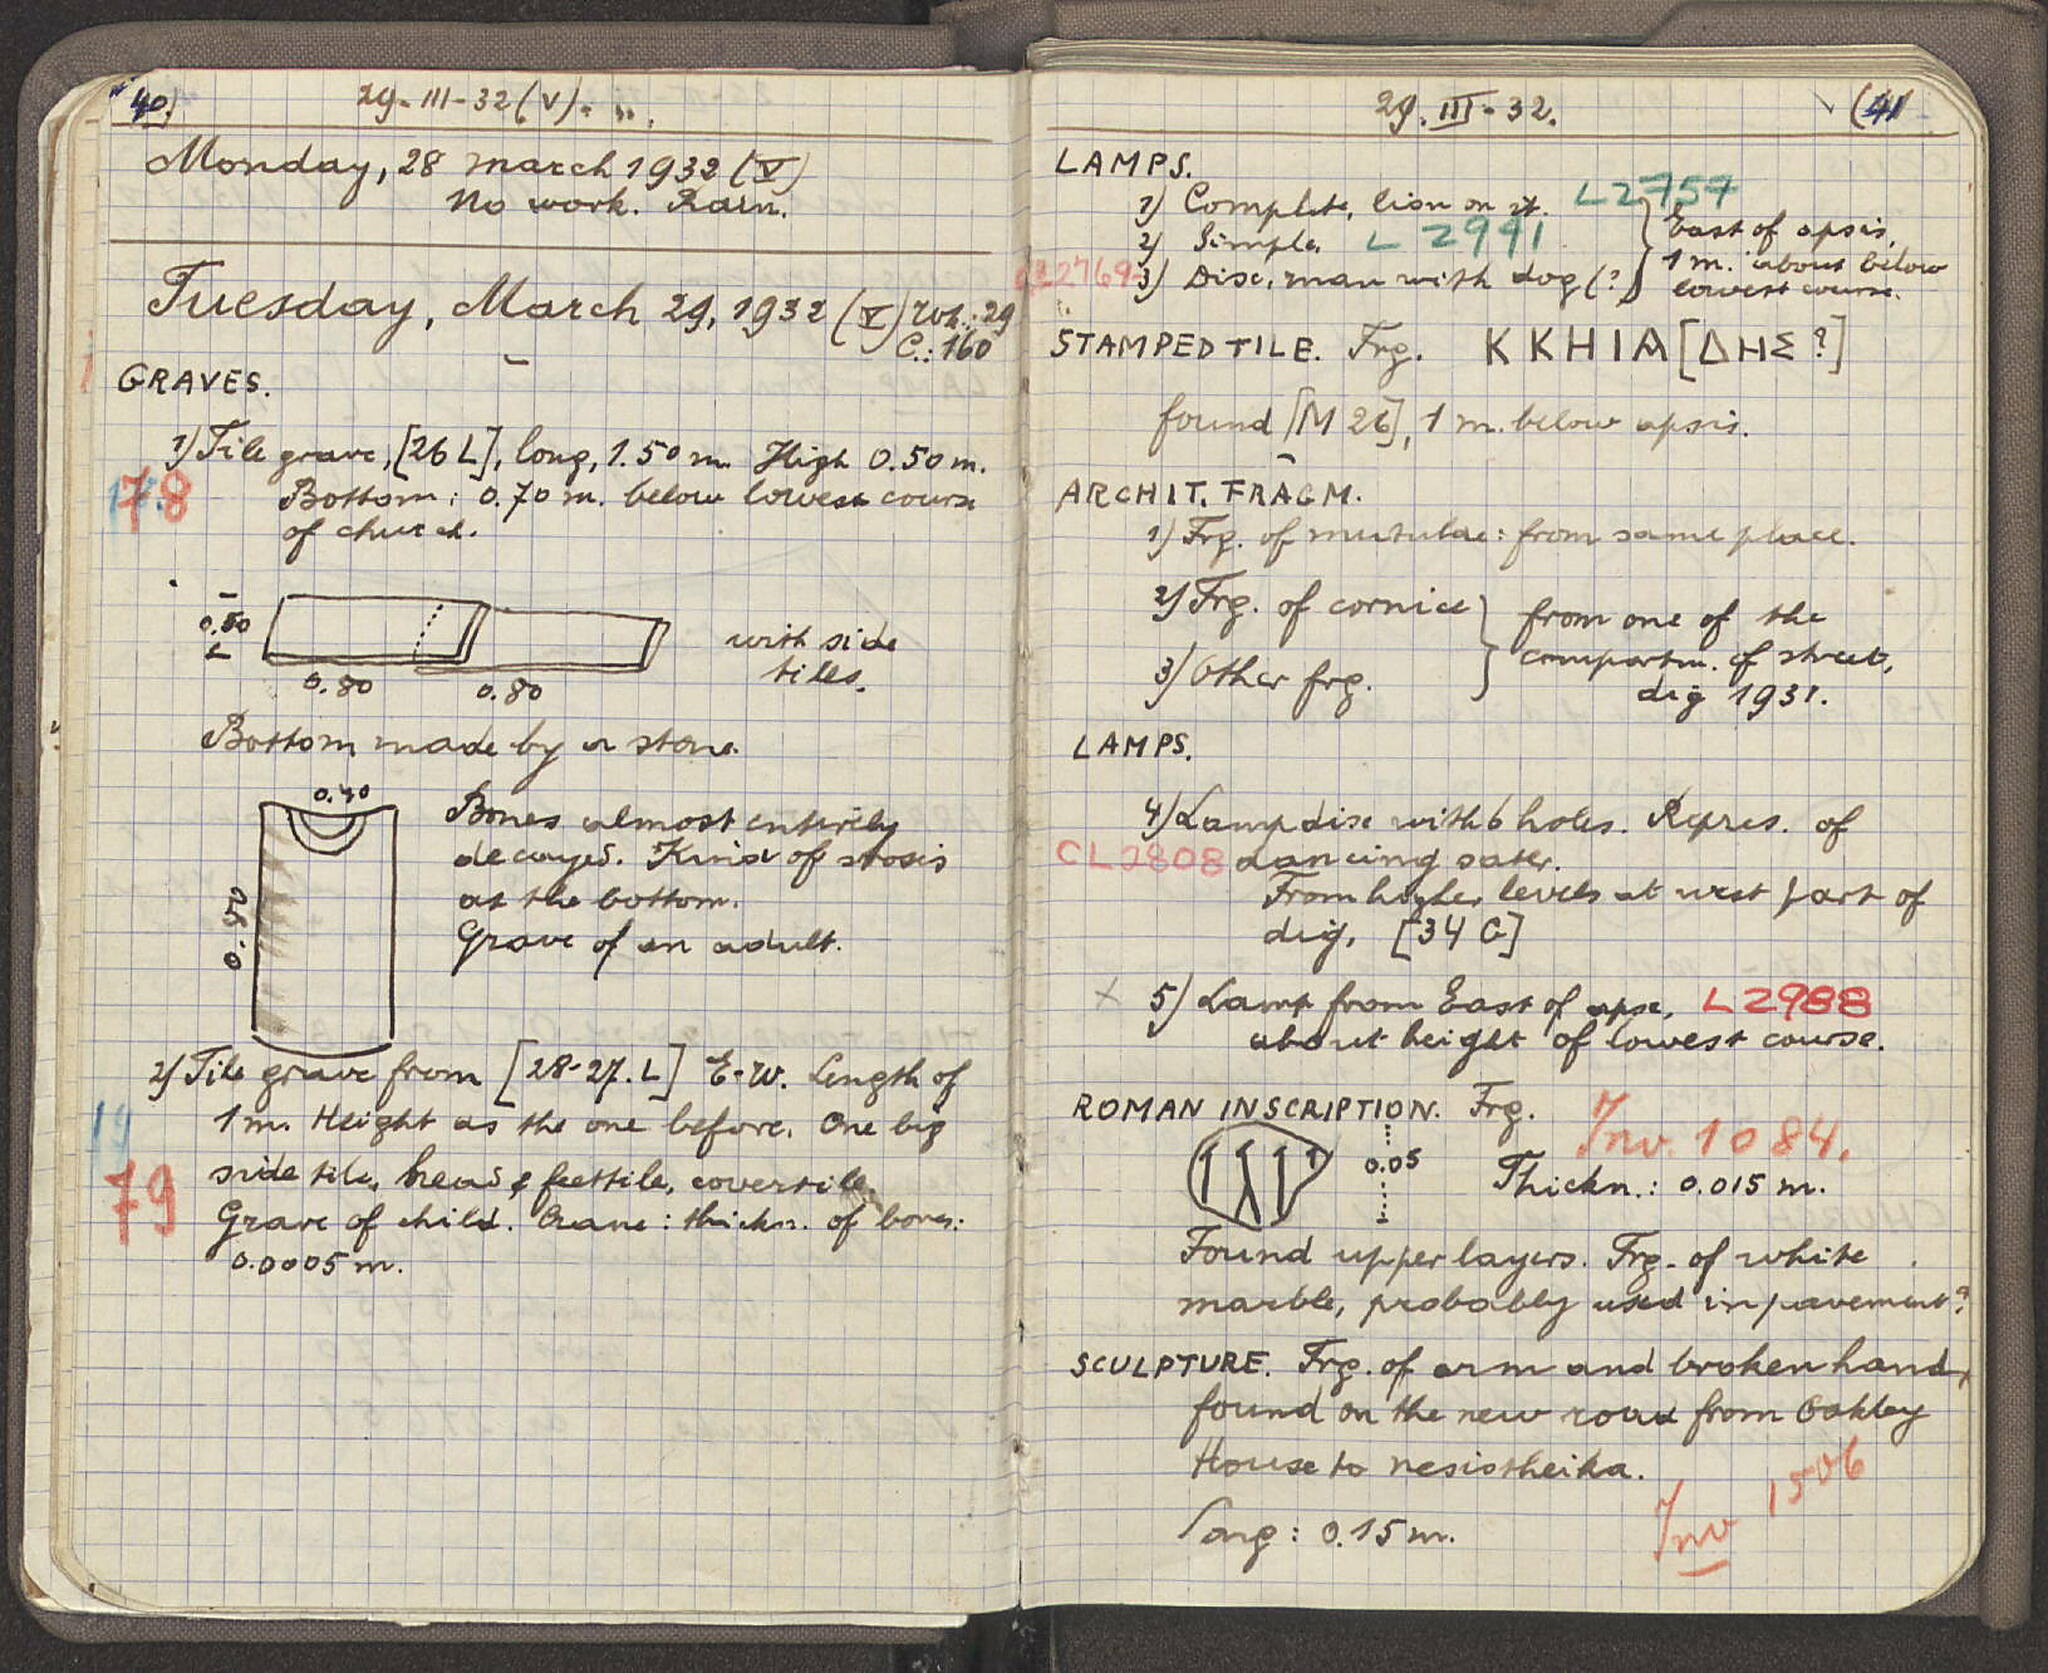 40)
29-III-32 (V)-
Monday, 28 March 1932 (V)
No work. Rain.
Tuesday, March 29, 1932 (V) Wk.: 29
C.: 160
GRAVES.
1) Tile grave, [26 L], long, 1.50 m. High 0.50 m.
78
Bottom: 0.70 m. below lowest course
of church.
0.50
0.80 0.80
with side
tiles.
Bottom made by a stone.
0.40
0.80
Bones almost entirely
decayed. Kind of stosis
at the bottom.
Grave of an adult.
2) Tile grave from [28-27. L] E-W. Length of
19
1 m. Height as the one before. One big
79
side tile, head & feettile, covertile.
Grave of child. Crane: thickn. of bones:
0.0005 m.
29. III-32.
(41
LAMPS.
1) Complete, lion on it. L2757
2) Simple. L 2991
CL2769 3) Disc, man with dog (?)
East of apsis,
1 m. about below
lowest course.
STAMPED TILE. Frg. KKHIA [ΔΗΣ?]
found [M 26], 1 m. below apsis.
ARCHIT. FRAGM.
1) Frg. of mutulae: from same place.
2) Frg. of cornice
3) Other frg.
from one of the
compartm. of street,
dig 1931.
LAMPS.
4) Lampdisc with 6 holes. Repres. of
CL2808 dancing sater.
From higher levels at west part of
dig, [34 G]
x 5) Lamp from East of apse, L2988
about height of lowest course.
ROMAN INSCRIPTION. Frg.
Inv. 1084.
0.05
Thickn.: 0.015 m.
Found upper layers. Frg. of white
marble, probably used in pavement?
SCULPTURE. Frg. of arm and broken hand,
found on the new road from Oakley
House to nesiotheika.
Long: 0.15 m.
Inv 1506